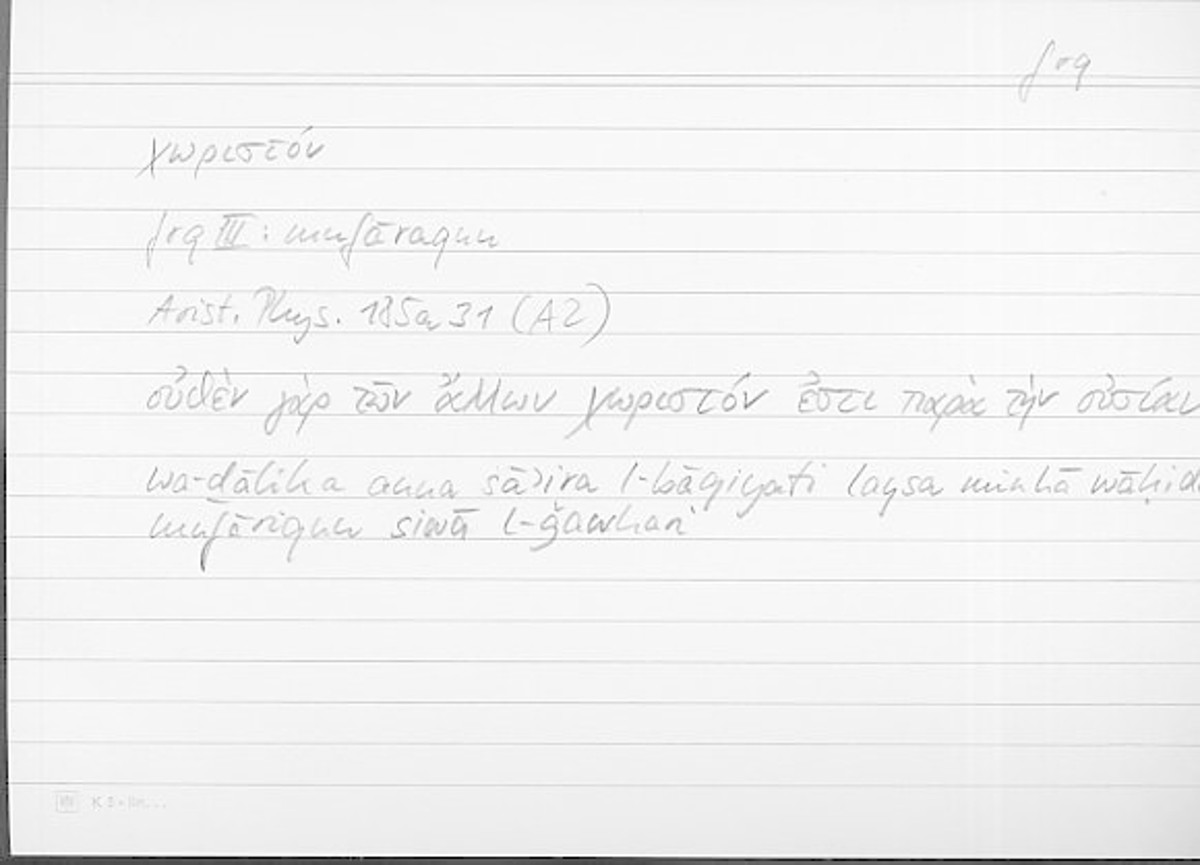 frq
χωριστόν
frq III: mufāraqun
Arist. Phys. 185a31 (A2)
οὐθὲν γὰρ τῶν ἄλλων χωριστόν ἐστι παρὰ τὴν οὐσίαν
wa-dālika anna sāʾira l-bāqiyati laysa minhā wāḥid
mufāriqun siwā l-ǧawhari